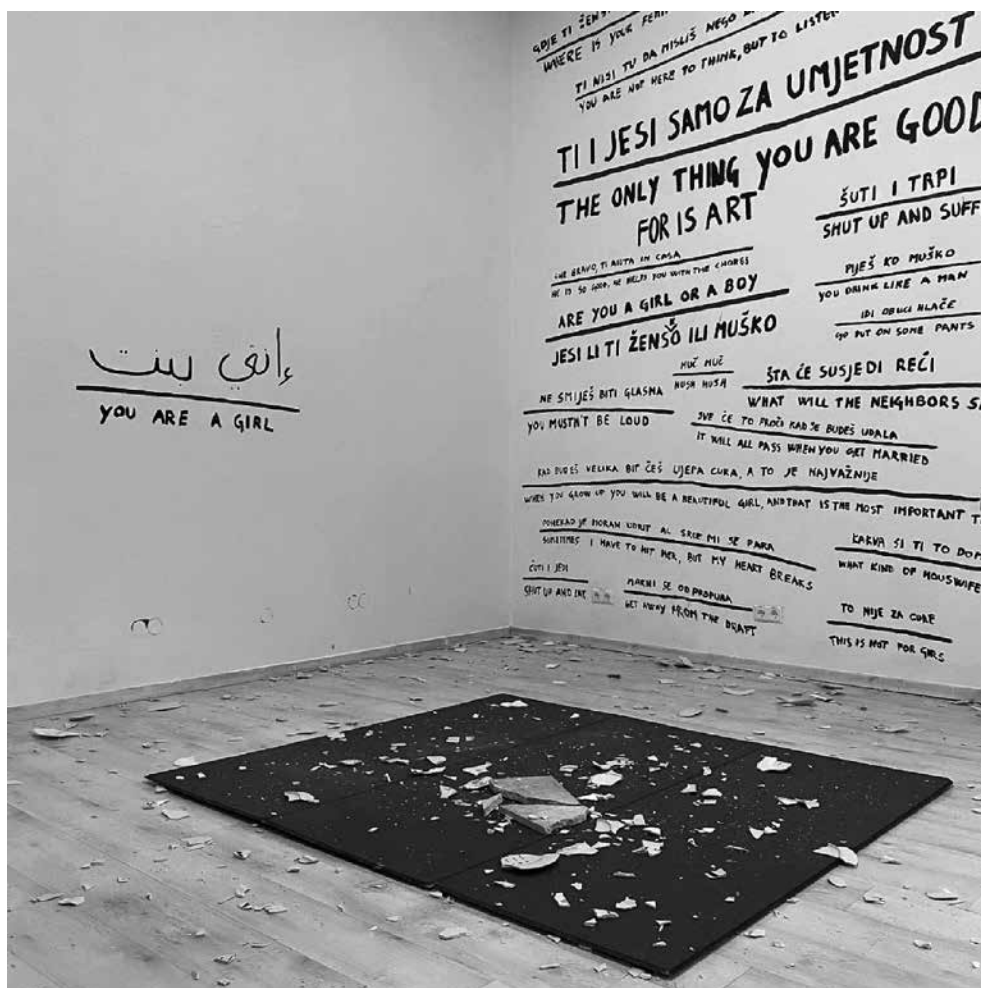 إنتي بنت
YOU ARE A GIRL
GDJE TI
WHERE IS YOUR
TI NISI TU DA MISLIŠ NEGO
YOU ARE NOT HERE TO THINK, BUT TO LISTEN
TI I JESI SAMO ZA UMJETNOST
THE ONLY THING YOU ARE GOOD
FOR IS ART
ŠUTI I TRPI
SHUT UP AND SUFF
CHE BRAVO, TI AIUTA IN CASA
HE IS SO GOOD, HE HELPS YOU WITH THE CHORES
PIJEŠ KO MUŠKO
YOU DRINK LIKE A MAN
ARE YOU A GIRL OR A BOY
JESI LI TI ŽENSO ILI MUŠKO
IDI OBUCI HLAČE
GO PUT ON SOME PANTS
MUČ MUČ
HUSH HUSH
ŠTA ĆE SUSJEDI REĆI
WHAT WILL THE NEIGHBORS SA
NE SMIJEŠ BITI GLASNA
YOU MUSTN'T BE LOUD
SVE ĆE TO PROĆI KAD SE BUDEŠ UDALA
IT WILL ALL PASS WHEN YOU GET MARRIED
KAD BUDEŠ VELIKA BIT ĆEŠ LIJEPA CURA, A TO JE NAJVAŽNIJE
WHEN YOU GROW UP YOU WILL BE A BEAUTIFUL GIRL, AND THAT IS THE MOST IMPORTANT T
PONEKAD JE MORAM UDRIT AL SRCE MI SE PARA
SOMETIMES I HAVE TO HIT HER, BUT MY HEART BREAKS
KAKVA SI TI TO DOM
WHAT KIND OF HOUSWIFE
ŠUTI I JEDI
SHUT UP AND EAT
MAKNI SE OD PROPUHA
GET AWAY FROM THE DRAFT
TO NIJE ZA CURE
THIS IS NOT FOR GIRLS